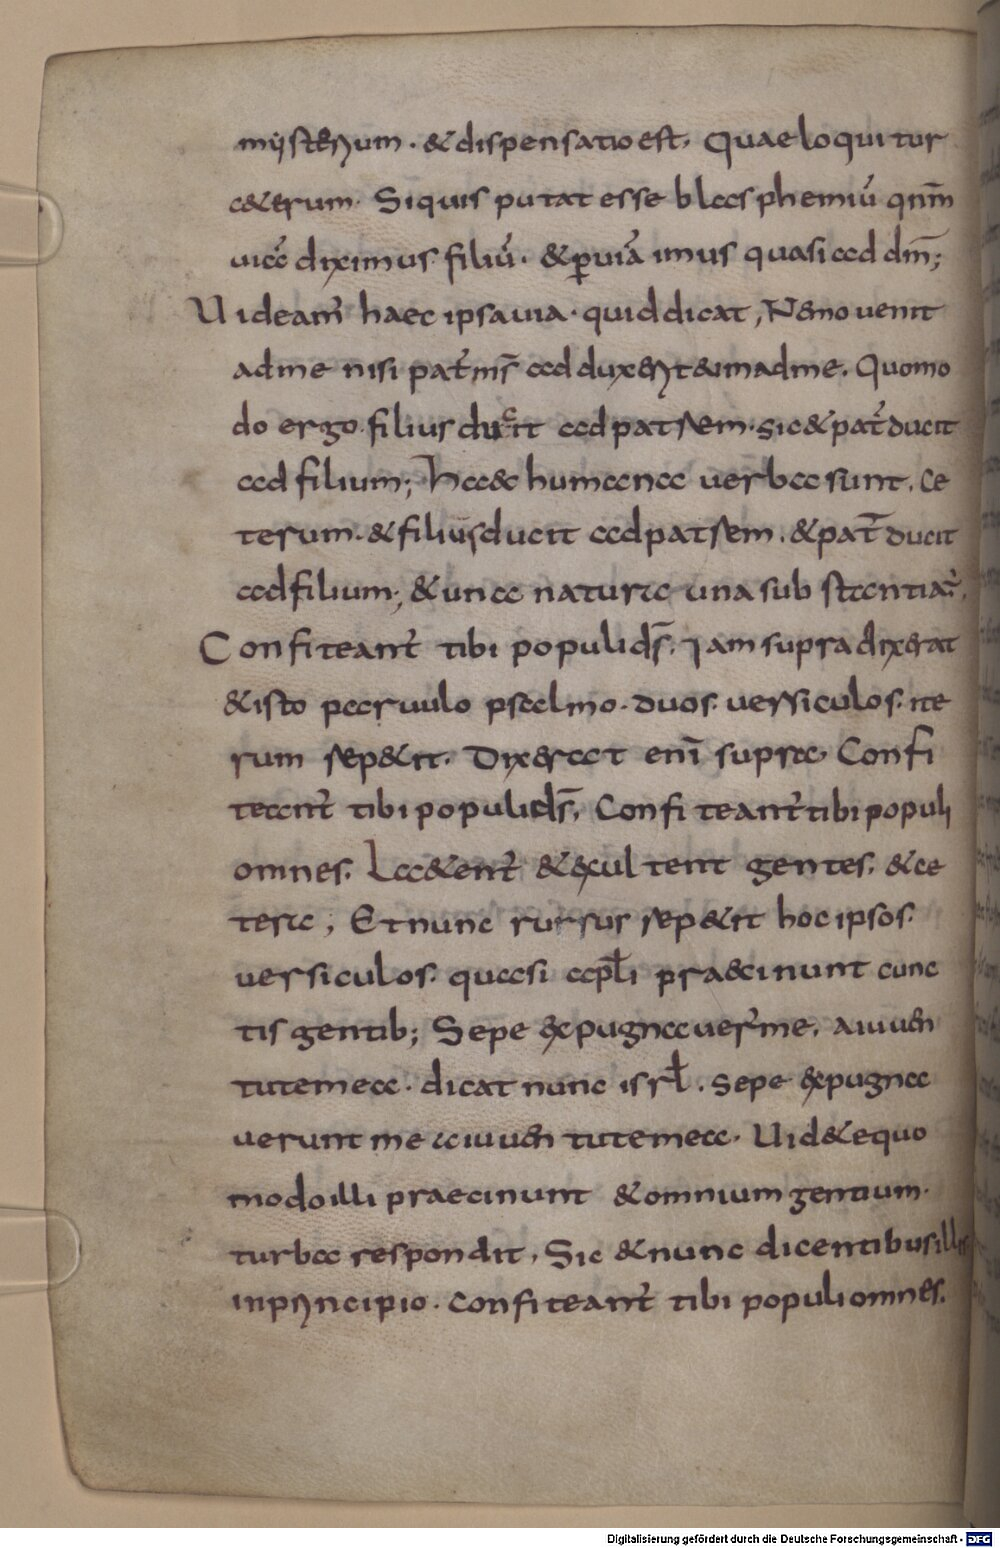 mysterium · & dispensatio est, Quae loquitur
c&erum. Siquis putat esse blasphemiū qnm̄
uiā diximus filiū · & ꝑuiā imus quasi ad dm̄;
Uideam̄ haec ipsa uia · quid dicat, Nemo uenit
adme nisi pat̄ ms̄ adduxerit eum adme. Quomo
do ergo filius ducit ad patrem · sic & pat̄ ducit
ad filium; Haec humana uerba sunt. Ce
terum · & filius ducit ad patrem. & pat̄ ducit
ad filium; & una natura una substantia ÷,
Confiteant̄ tibi populi ds̄. Iam supra dixerat
& isto paruulo psalmo · duos uersiculos. ite
rum rep&it. Dixerat enī supra, Confi
teant̄ tibi populi ds̄, Confiteant̄ tibi populi
omnes. La&ent̄ & exultent gentes, & ce
tera, Et nunc rursus rep&it hoc ipsos
uersiculos. quasi apl̄i praecinunt cunc
tis gentib; Sepe expugnauer̄ me, a iuuen
tute mea · dicat nunc isrl̄. Sepe expugna
uerunt me a iuuentute mea. Uid& equo
modo illi praecinunt & omnium gentium
turba respondit, Sic & nunc dicentibus illis
in principio · Confiteant̄ tibi populi omnes.
Digitalisierung gefördert durch die Deutsche Forschungsgemeinschaft - DFG